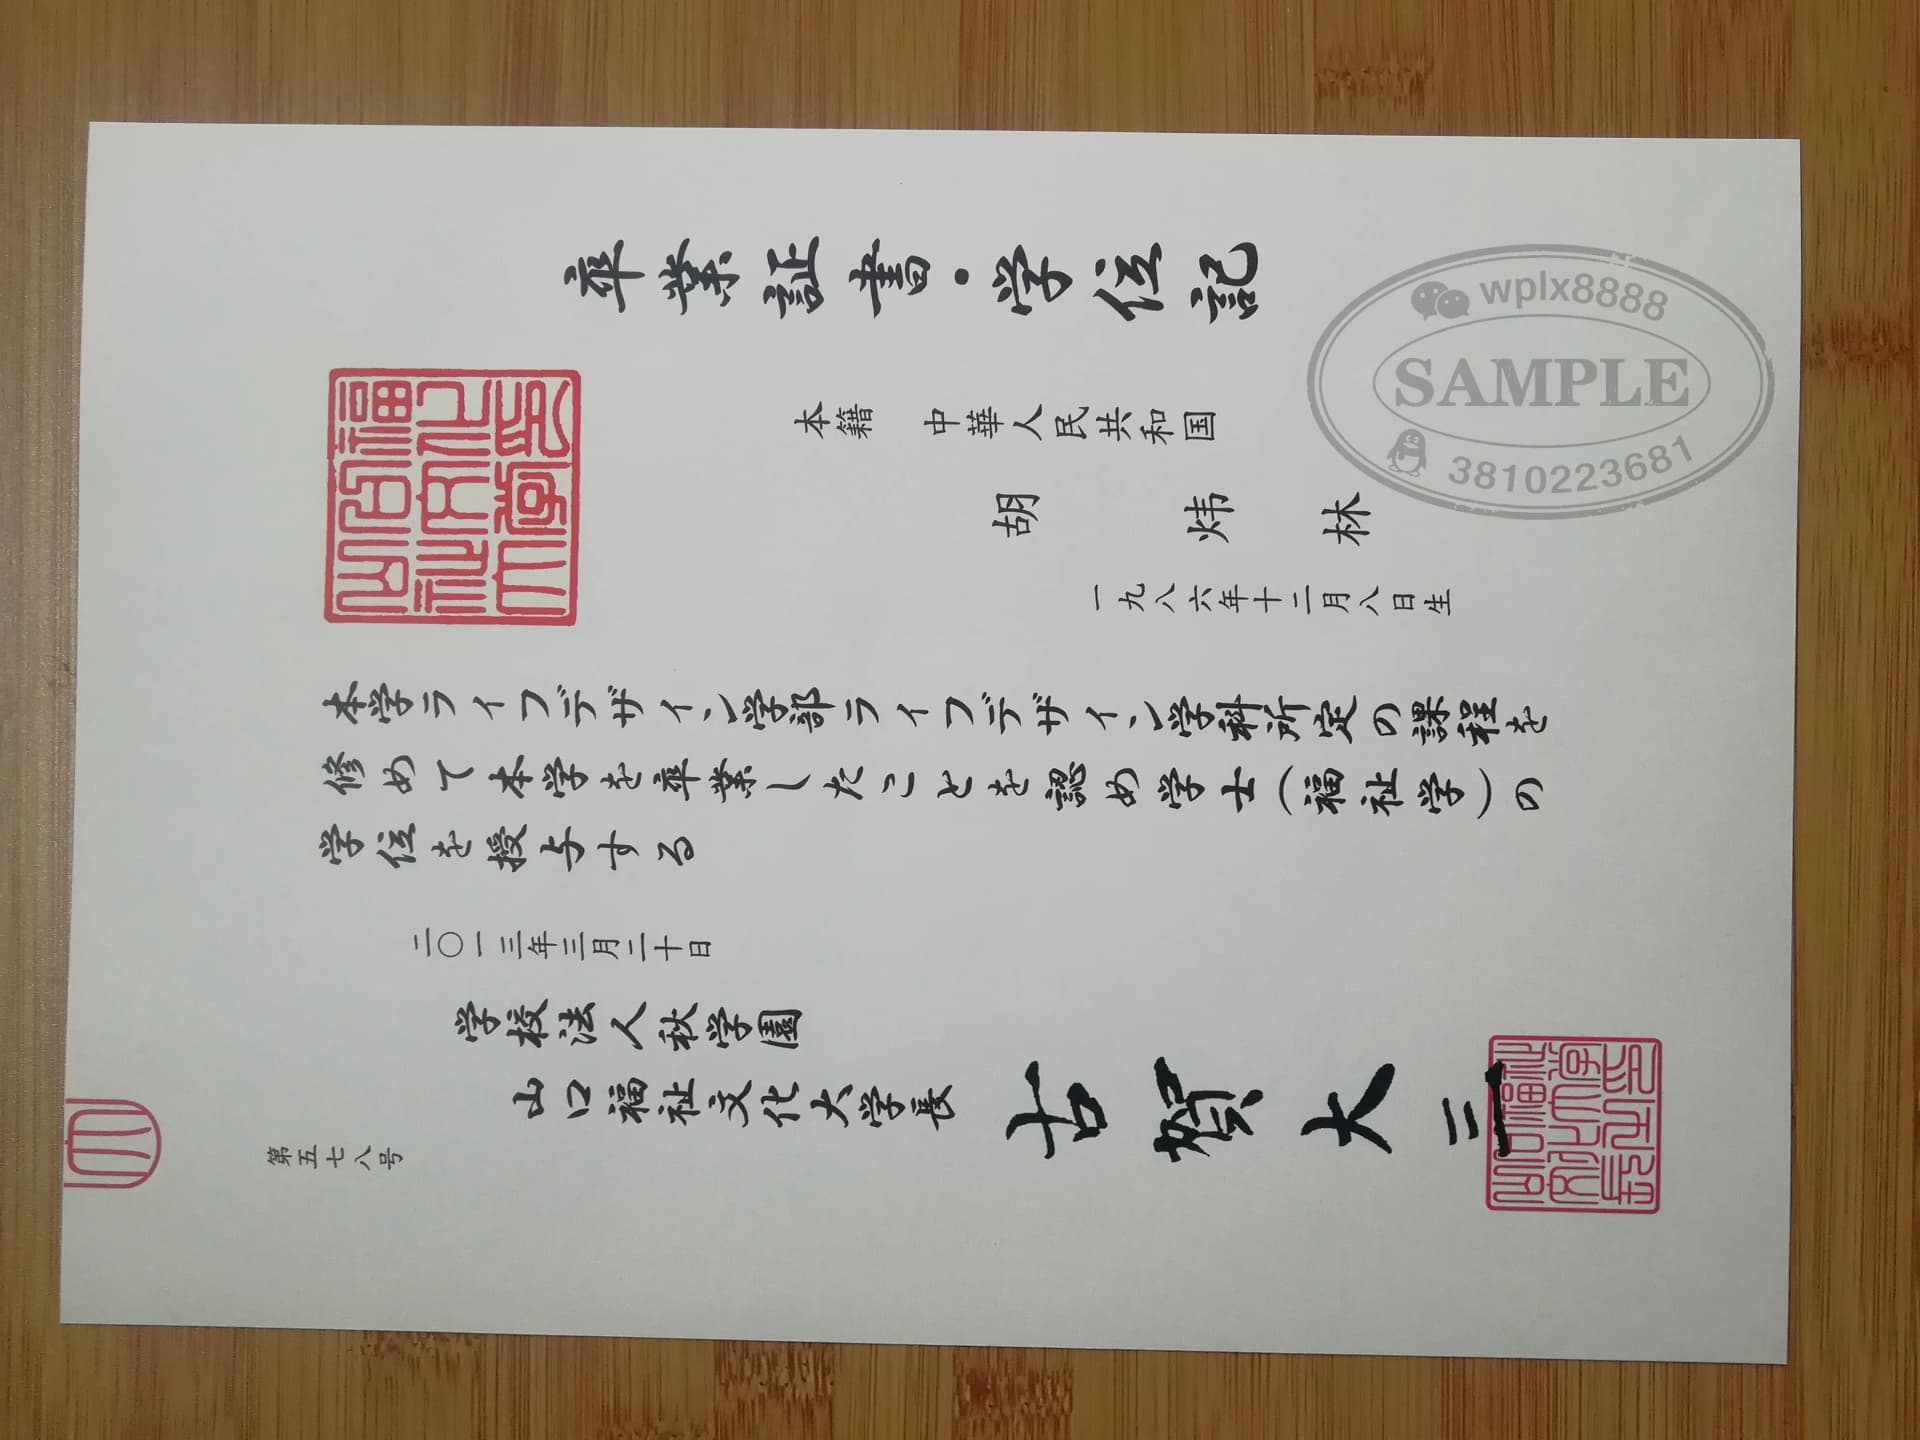 卒業証書・学位記
本籍 中華人民共和国
胡 炜 林
一九八六年十二月八日生
本学ライフデザイン学部ライフデザイン学科所定の課程を
修めて本学を卒業したことを認め学士(福祉学)の
学位を授与する
二〇一三年三月二十日
学校法人秋学園
山口福祉文化大学長 古賀大二
第五七八号
wplx8888
SAMPLE
3810223681
山口福
祉文化
大学印